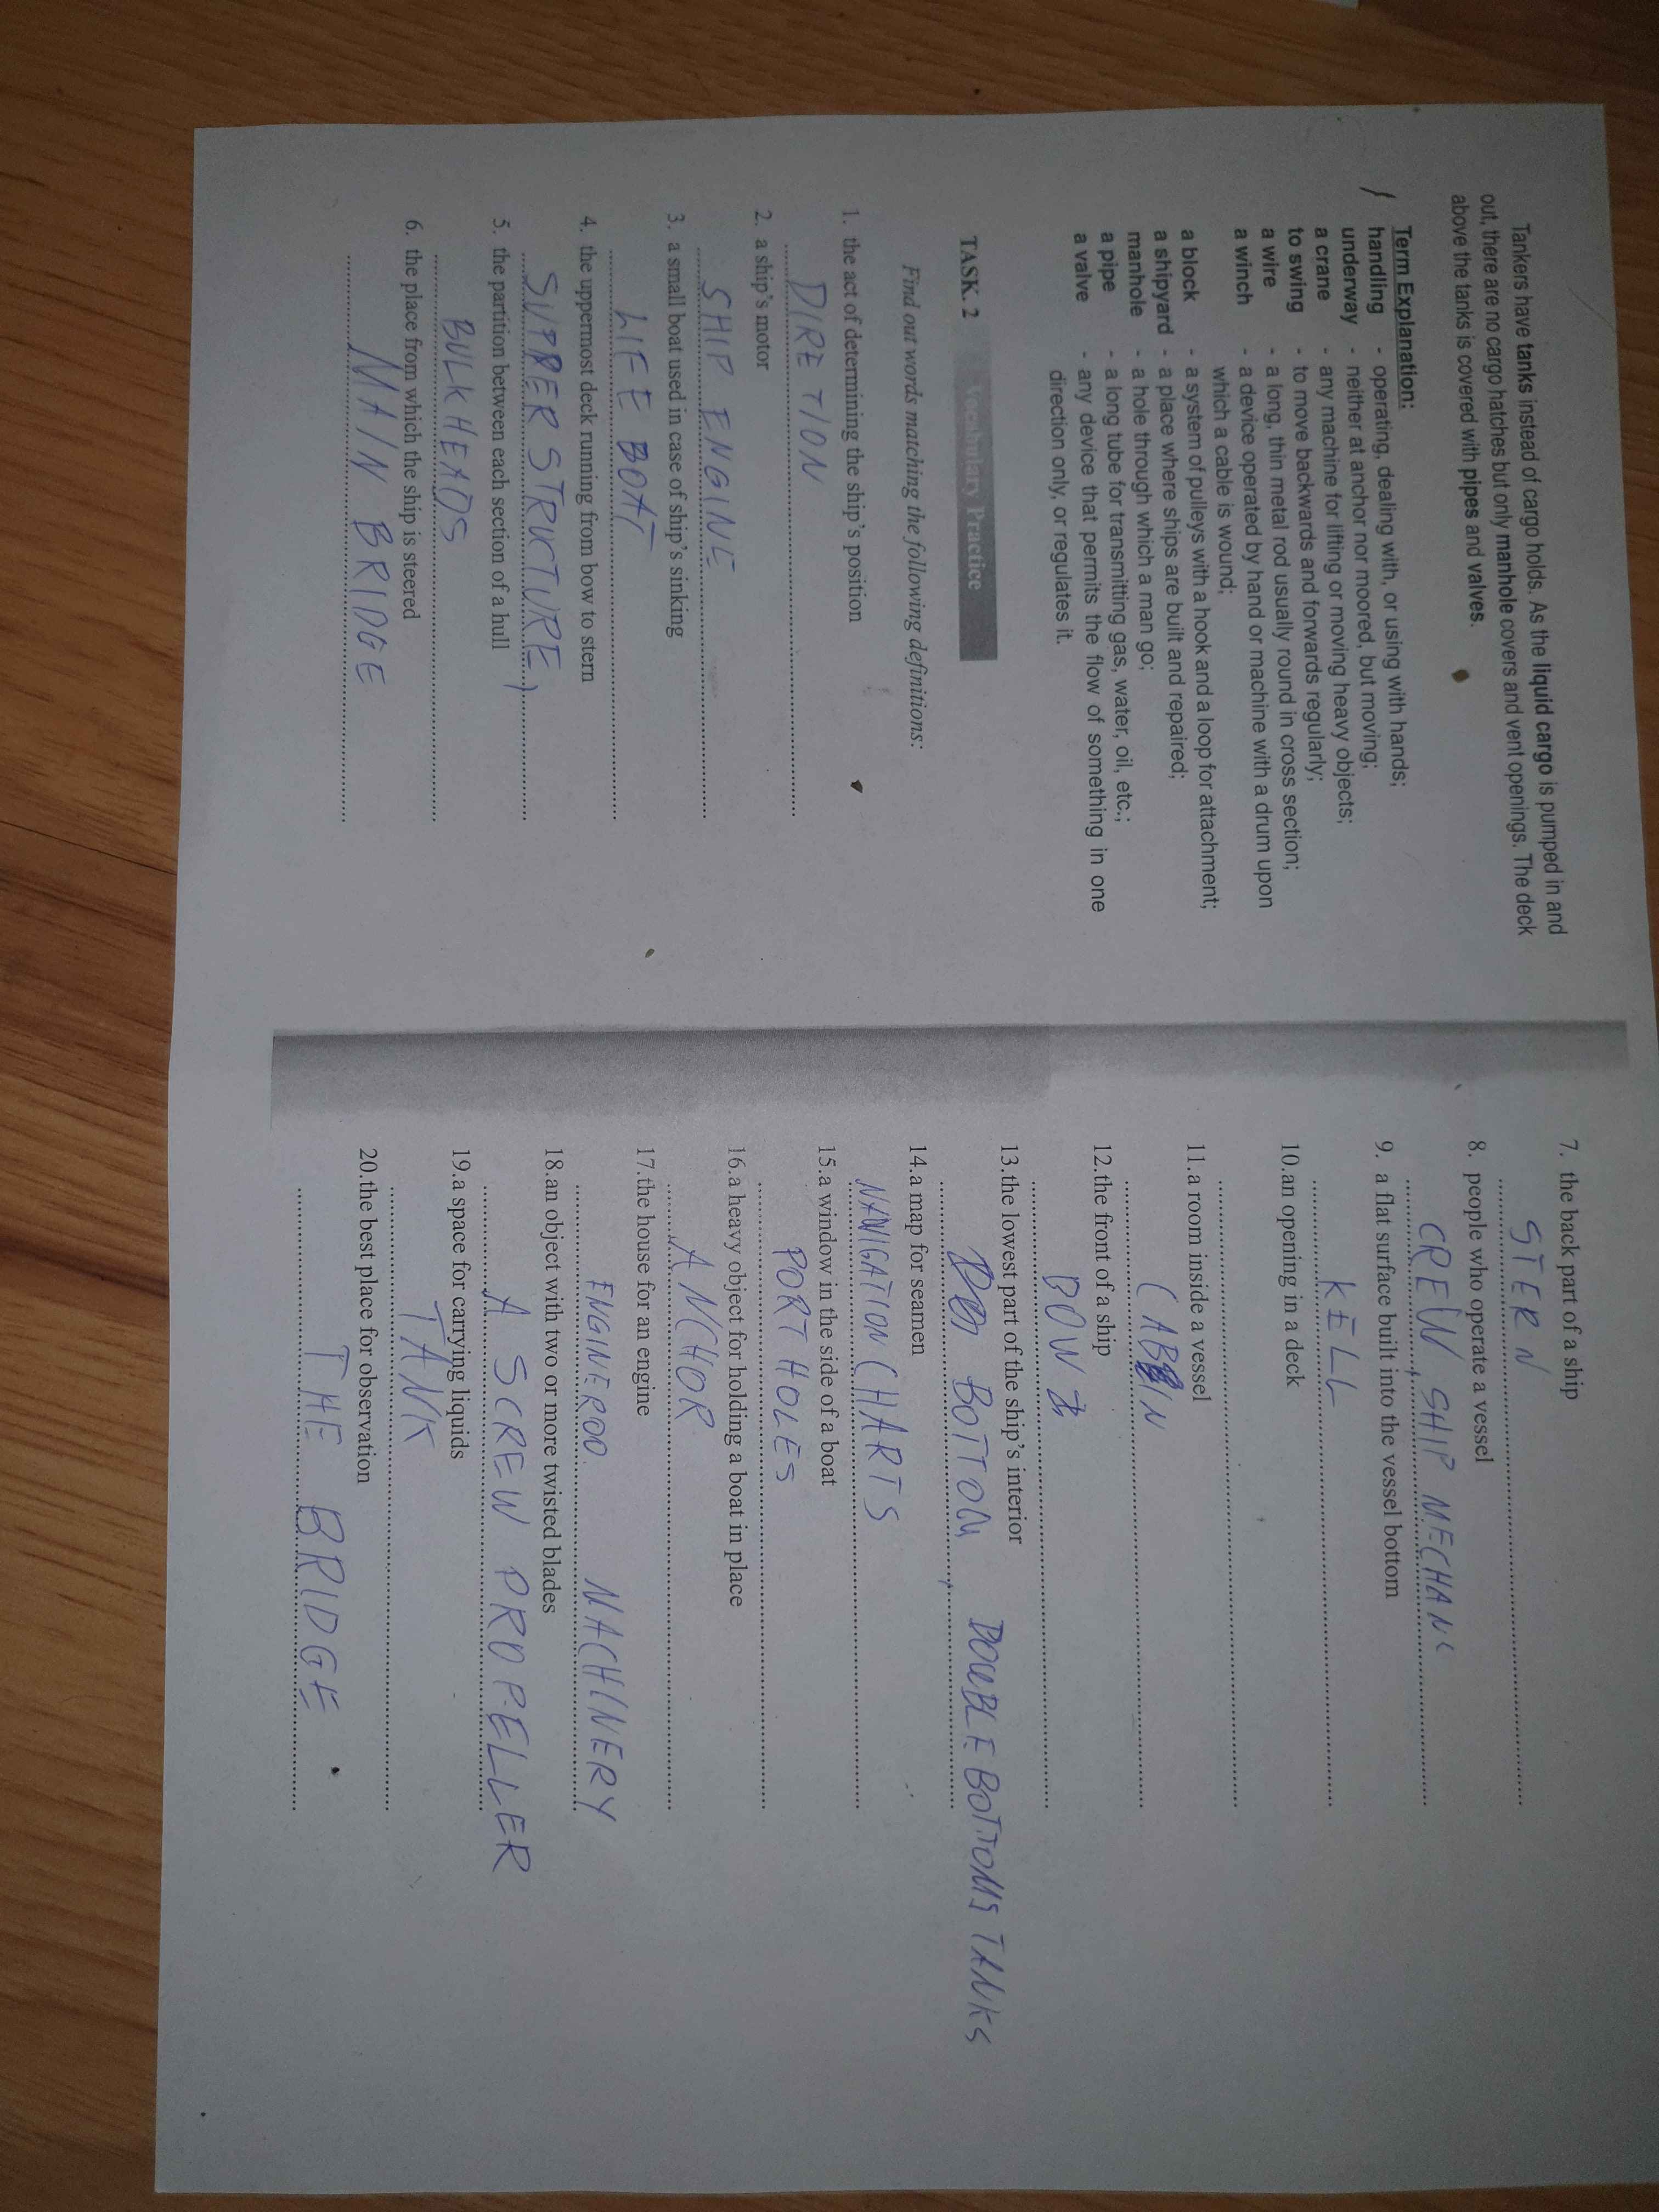 Tankers have tanks instead of cargo holds. As the liquid cargo is pumped in and
out, there are no cargo hatches but only manhole covers and vent openings. The deck
above the tanks is covered with pipes and valves.
Term Explanation:
handling - operating, dealing with, or using with hands;
underway - neither at anchor nor moored, but moving;
a crane - any machine for lifting or moving heavy objects;
to swing - to move backwards and forwards regularly;
a wire - a long, thin metal rod usually round in cross section;
a winch - a device operated by hand or machine with a drum upon
which a cable is wound;
a block - a system of pulleys with a hook and a loop for attachment;
a shipyard - a place where ships are built and repaired;
manhole - a hole through which a man go;
a pipe - a long tube for transmitting gas, water, oil, etc.;
a valve - any device that permits the flow of something in one
direction only, or regulates it.
TASK. 2 Vocabulary Practice
Find out words matching the following definitions:
1. the act of determining the ship's position
DIRETION
2. a ship's motor
SHIP ENGINE
3. a small boat used in case of ship's sinking
LIFE BOAT
4. the uppermost deck running from bow to stern
SUPRERSTRUCTURE,
5. the partition between each section of a hull
BULKHEADS
6. the place from which the ship is steered
MAIN BRIDGE
7. the back part of a ship
STERN
8. people who operate a vessel
CREW, SHIP MECHANC
9. a flat surface built into the vessel bottom
KELL
10.an opening in a deck
11.a room inside a vessel
CABIN
12.the front of a ship
BOW
13.the lowest part of the ship's interior
BOTTOM, DOUBLE BOTTOMS TANKS
14.a map for seamen
NAWIGATION CHARTS
15.a window in the side of a boat
PORT HOLES
16.a heavy object for holding a boat in place
ANCHOR
17.the house for an engine
ENGINEROO MACHINERY
18.an object with two or more twisted blades
A SCREW PROPELLER
19.a space for carrying liquids
TANK
20.the best place for observation
THE BRIDGE